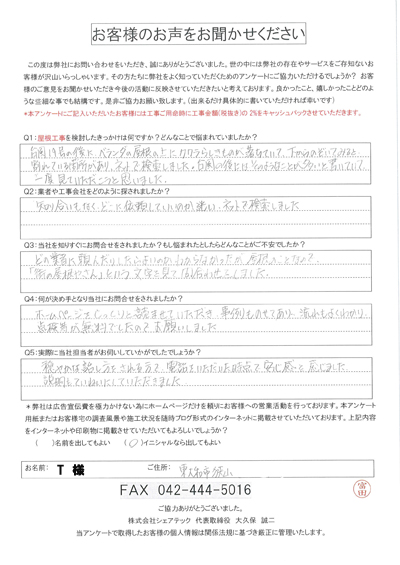 お客様のお声をお聞かせください
この度は弊社にお問い合わせをいただき、誠にありがとうございました。世の中には弊社の存在やサービスをご存知ないお
客様が沢山いらっしゃいます。その方たちに弊社をよく知っていただくためのアンケートにご協力いただけるでしょうか？ お客
様のご意見をお聞かせいただき今後の活動に反映させていただきたいと考えております。良かったこと、嬉しかったことどのよ
うな些細な事でも結構です。是非ご協力お願い致します。（出来るだけ具体的に書いていただければ幸いです）
*本アンケートにご記入いただいたお客様には工事ご用命時に工事金額（税抜き）の 2%をキャッシュバックさせていただきます。
Q1：屋根工事を検討したきっかけは何ですか？どんなことで悩まれていましたか？
台風19号の後に、ベランダの屋根の上に、カワラらしきものが落ちていて、下からのぞいてみると
割れている箇所があり、ネットで検索しました。台風の後には
一度見ていただこうと思いました。
Q2：業者や工事会社をどのように探されましたか？
知り合いもなく、どこに依頼していいのか迷い、ネットで検索しました
Q3：当社を知りすぐにお問合せをされましたか？もし悩まれたとしたらどんなことがご不安でしたか？
どの業者に頼んだりしたらよいのかわからなかったが、屋根のことなので、
「街の屋根やさん」という文字を見て問い合わせしました。
Q4：何が決め手となり当社にお問合せをされましたか？
ホームページをじっくりと読ませていただき、事例ものせてあり、流れもよくわかり、
点検等が無料でしたのでお願いしました。
Q5：実際に当社担当者がお伺いしていかがでしたでしょう？
穏やかな話し方をされる方で、電話をいただいた時点で安心感を感じました。
説明もていねいにしていただきました。
＊弊社は広告宣伝費を極力かけない為にホームページだけを頼りにお客様への営業活動を行っております。本アンケート
用紙またはお客様宅の調査風景や施工状況を随時ブログ形式のインターネットに掲載させていただいております。上記内容
をインターネットや印刷物に掲載させていただいてもよろしいでしょうか？
（　）名前を出してもよい　（○）イニシャルなら出してもよい
お名前： T 様 ご住所： 東大和市狭山
FAX 042-444-5016
富田
ご協力ありがとうございました。
株式会社シェアテック 代表取締役 大久保 誠二
当アンケートで取得したお客様の個人情報は関係法規に基づき厳正に管理いたします。